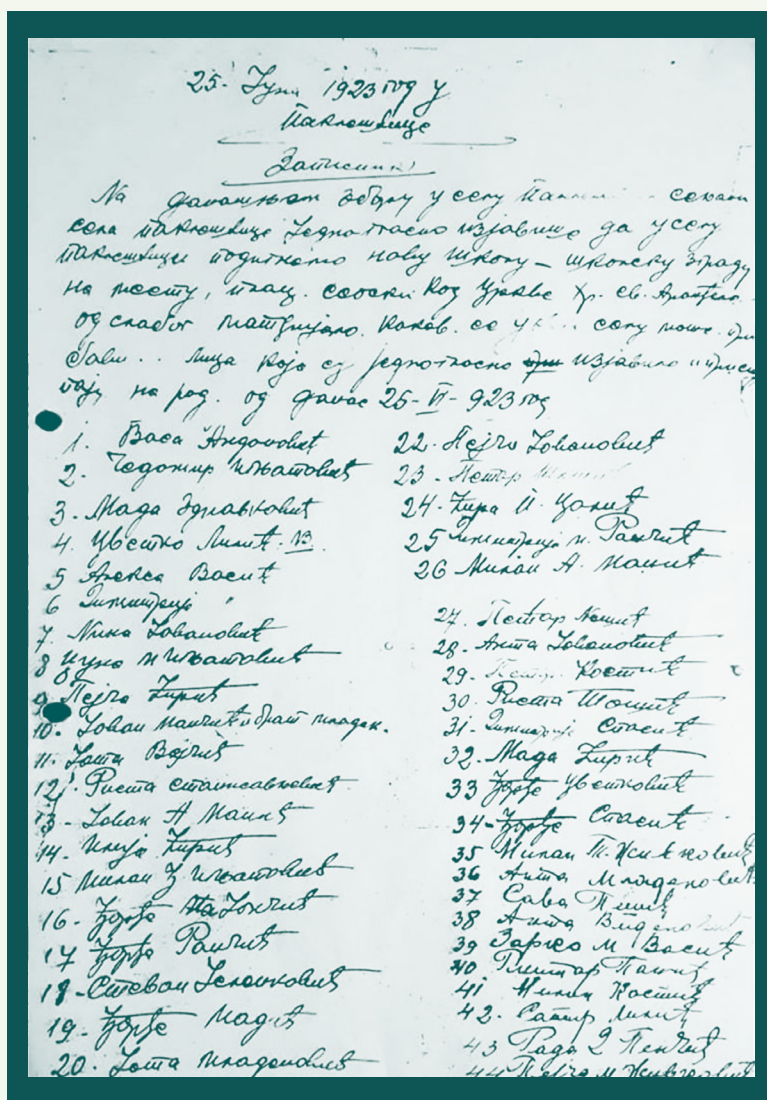 25. Јуна 1923 год у
Паклештице
Записник
На данашњем збору у селу
села Паклештице једногласно изјавише да у селу
Паклештици подигнемо нову школу – школску зграду
на месту, плац. сеоски код Цркве Хр. св.
од слабог матријала. каков. се у селу може
лица која су једногласно изјавила и
на род. од данас 25-VI-923 год
1. Васа Андоновић
2. Чедомир Игњатовић
3. Мада Здравковић
4. Цветко Лилић
5 Алекса Васић
6 Димитрије "
7. Нина Јовановић
8 Игњатовић
9 Пејча Ћирић
10. Јован Манчић и брат младен.
11. Јота Војчић
12. Риста Станисављевић
13 - Јован А Манић
14. Илија Ћирић
15 Милан Игњатовић
16. Ђорђе
17 Ђорђе Ранчић
18 - Стеван Јеленковић
19. Ђорђе Мадић
20. Јота Младеновић
22. Пејча Јовановић
23. Петар
24. Ћира
25 Димитрије Н. Ранчић
26 Милан А. Манић
27. Петар Нешић
28. Анта Јовановић
29. Костић
30. Риста Тошић
31. Димитрије Спасић
32. Мада Ћирић
33 Ђорђе Цветковић
34 - Ђорђе Спасић
35 Милан Т. Живковић
36 Анта Младеновић
37 Сава
38 Анта
39 Зарко М Васић
40 Глигор Панић
41 Костић
42. Лилић
43 Рада Пенчић
44 Пејча М. Живковић